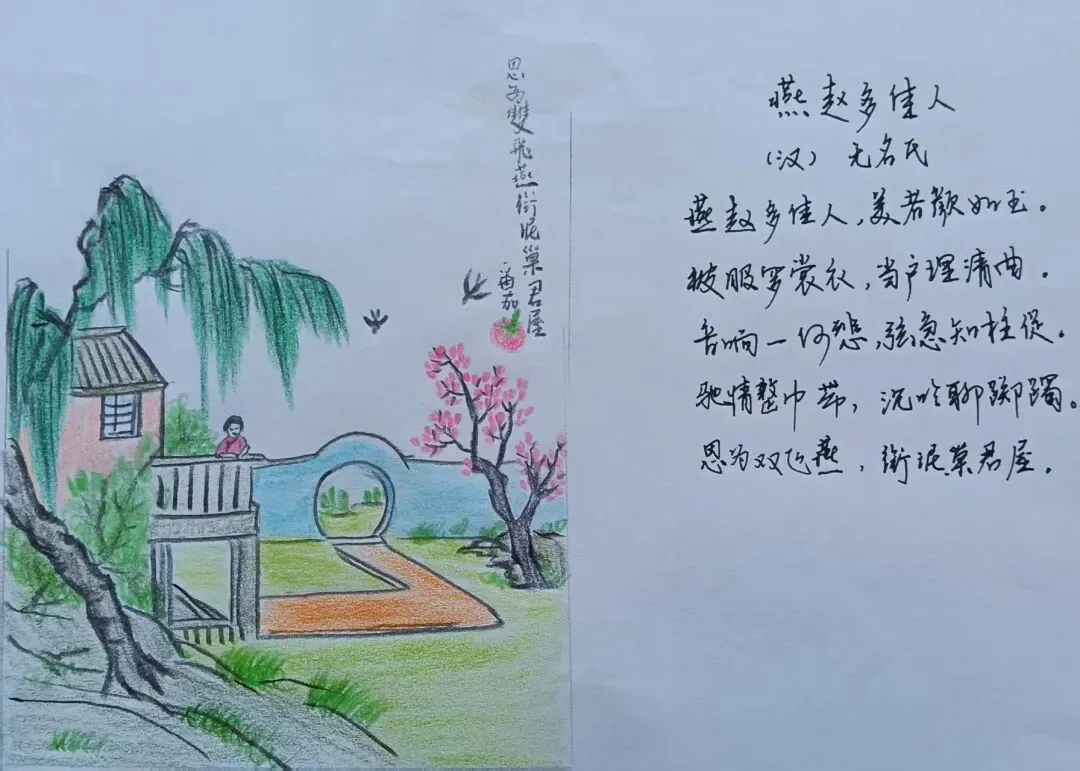 思为雙飛燕銜泥巢君屋
番茄
燕赵多佳人
（汉）无名氏
燕赵多佳人，美者颜如玉。
被服罗裳衣，当户理清曲。
音响一何悲，弦急知柱促。
驰情整巾带，沉吟聊踯躅。
思为双飞燕，衔泥巢君屋。